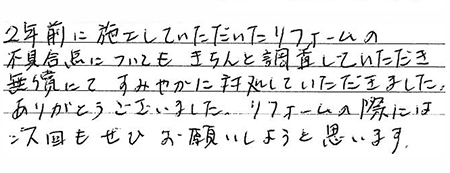 2年前に施工していただいたリフォームの
不具合点についても きちんと調査していただき
無償にて すみやかに対処していただきました。
ありがとうございました。リフォームの際には
次回もぜひ お願いしようと思います。